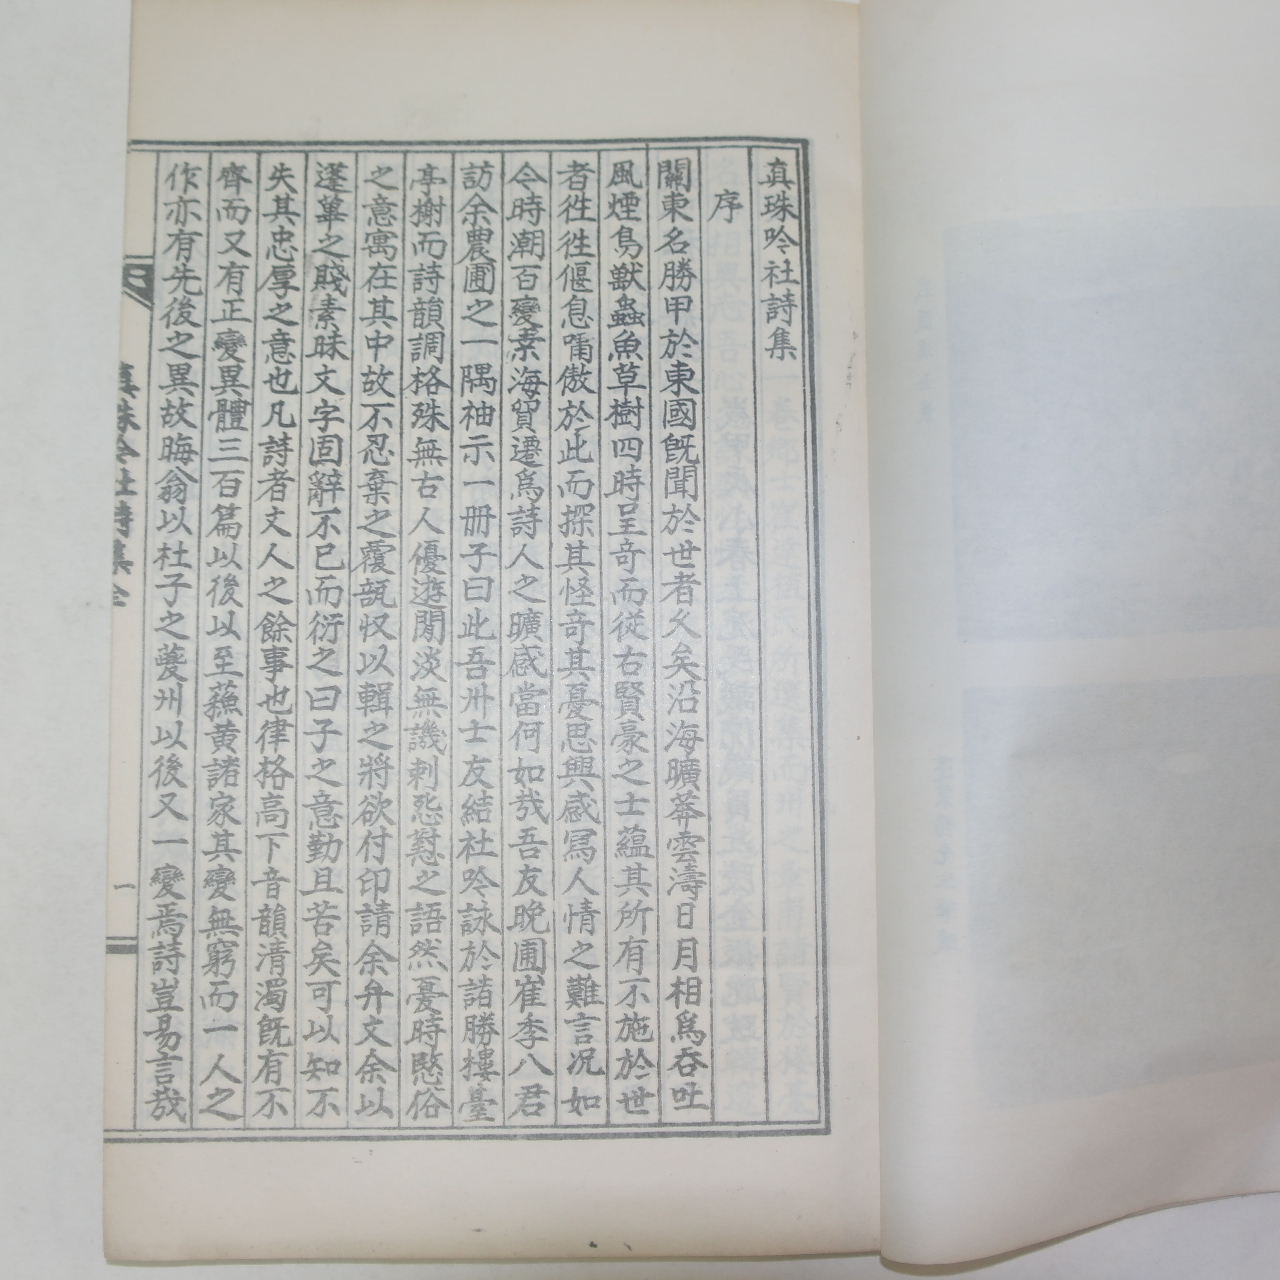 真珠吟社詩集
序
關東名勝甲於東國旣聞於世者久矣沿海曠莽雲濤日月相爲呑吐
風煙鳥獸蟲魚草樹四時呈奇而從右賢豪之士蘊其所有不施於世
者徃徃偃息嘯傲於此而探其怪奇其憂思興感冩人情之難言况如
今時潮百變桒海貿遷爲詩人之曠感當何如㦲吾友晩圃崔季八君
訪余農圃之一隅袖示一冊子曰此吾州士友結社吟詠於諸勝樓臺
亭榭而詩韻調格殊無古人優遊閒淡無譏刺怨懟之語然憂時愍俗
之意寓在其中故不忍棄之覆瓿収以輯之將欲付印請余弁文余以
蓬蓽之賤素昧文字固辭不已而衍之曰子之意勤且苦矣可以知不
失其忠厚之意也凡詩者文人之餘事也律格高下音韻清濁旣有不
齊而又有正變異體三百篇以後以至蘓黄諸家其變無窮而一人之
作亦有先後之異故晦翁以杜子之夔州以後又一變焉詩豈易言㦲
真珠吟社詩集全
一